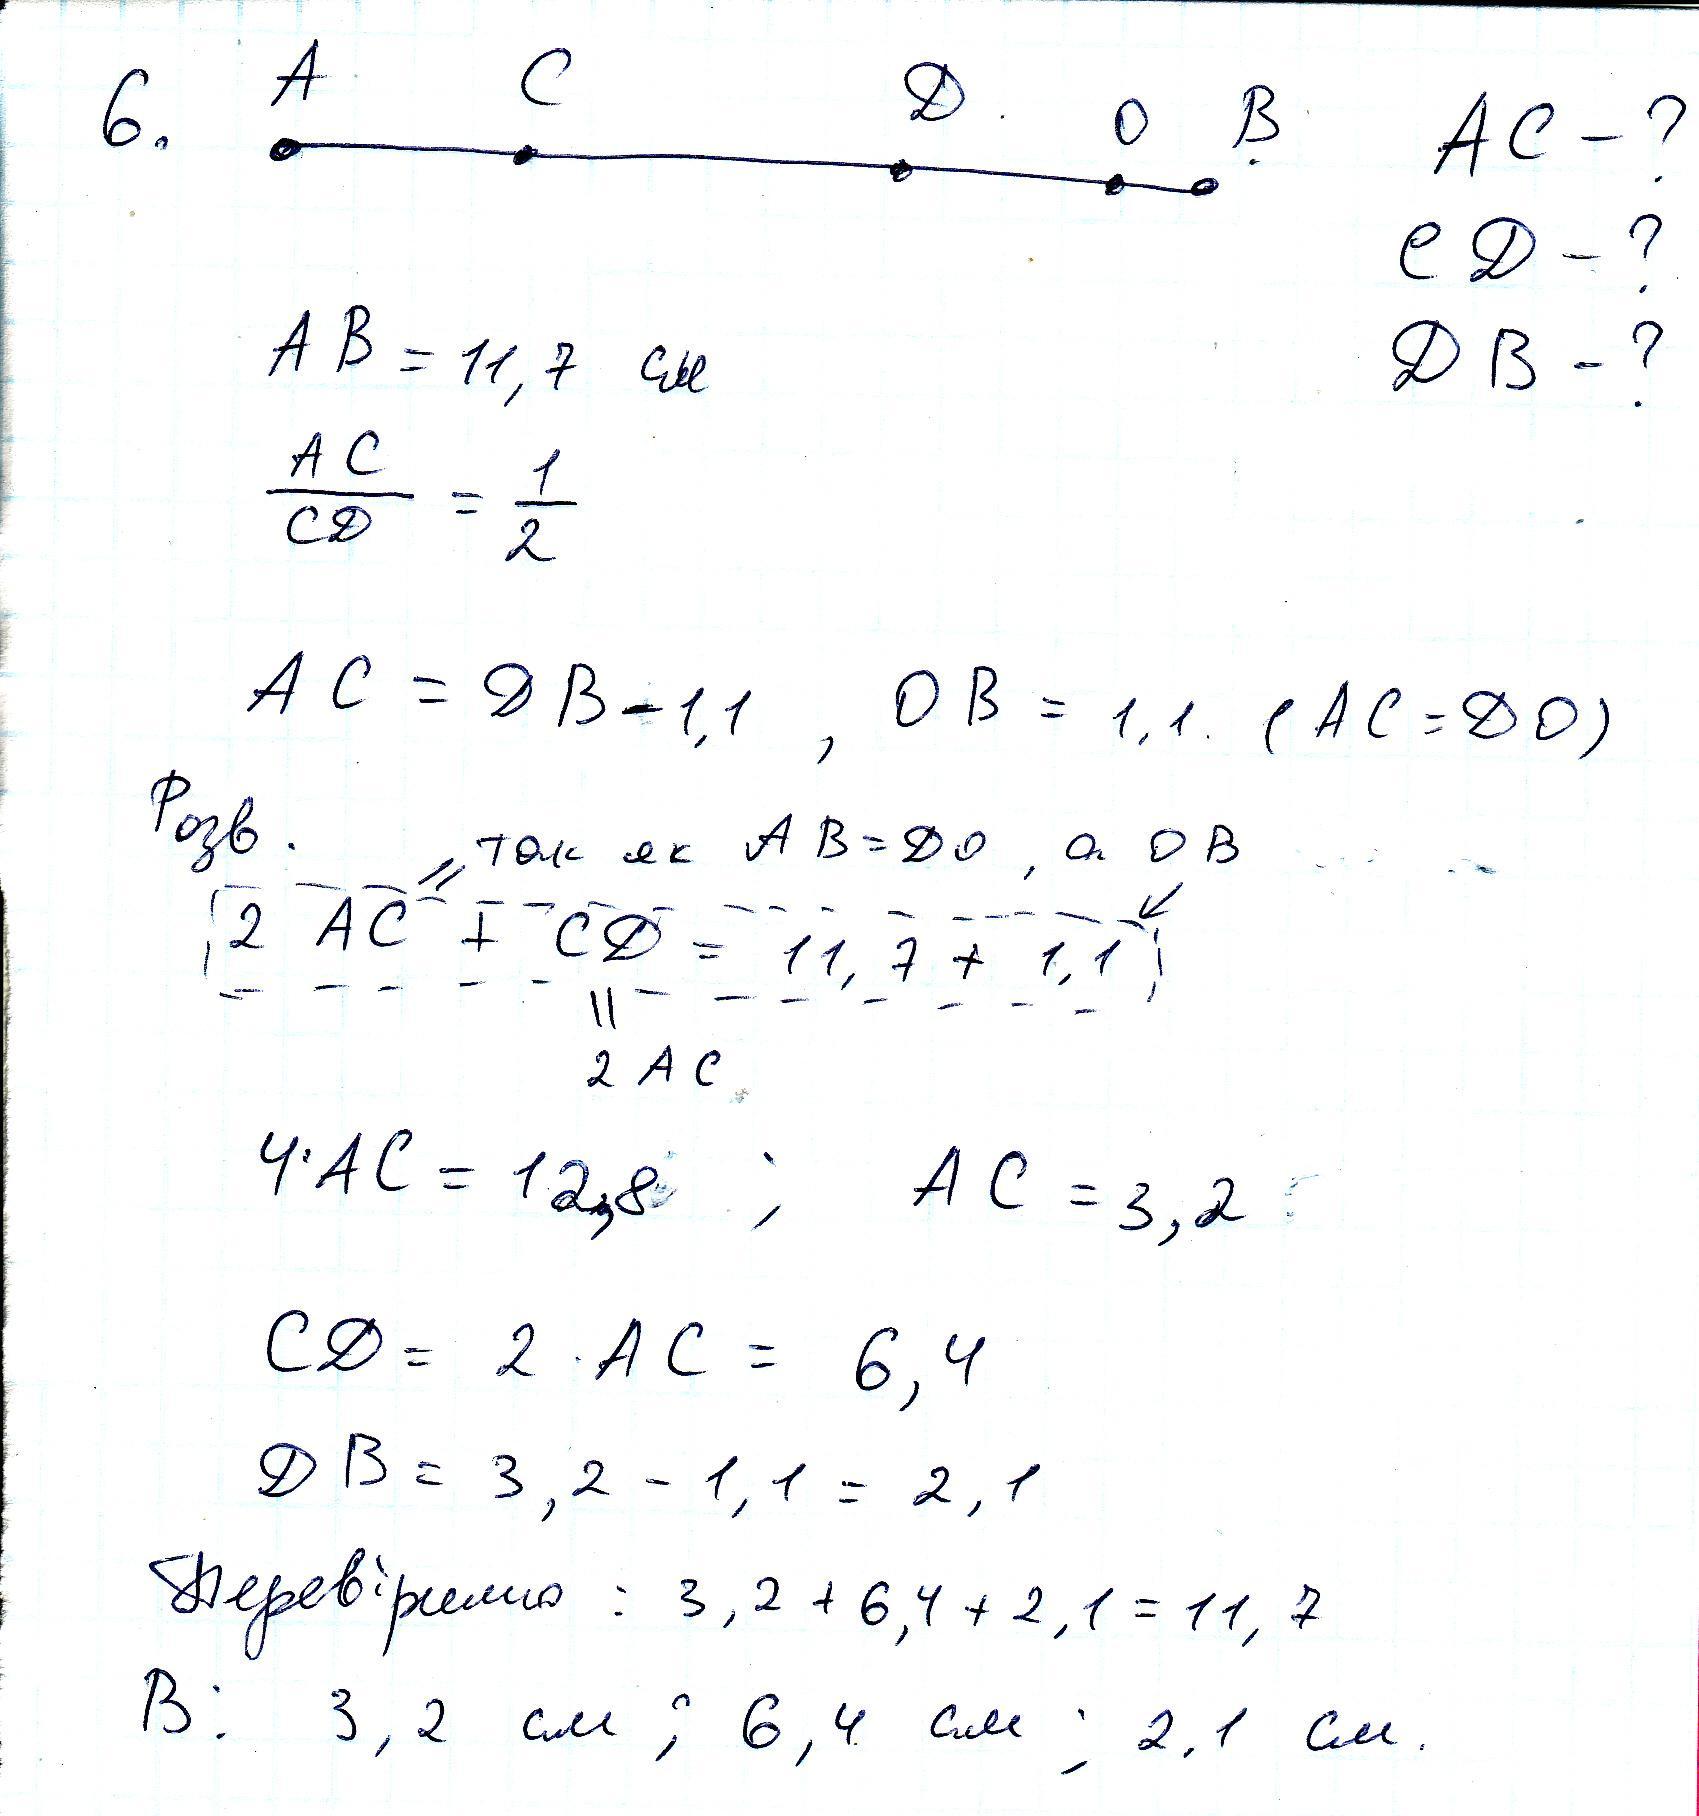 6. A C D O B AC - ?
CD - ?
DB - ?
AB = 11,7 см
AC/CD = 1/2
AC = DB - 1,1 , OB = 1,1. (AC = DO)
Розв.
так як AB = DO, а OB
2 AC + CD = 11,7 + 1,1
||
2 AC
4·AC = 12,8 ; AC = 3,2
CD = 2 · AC = 6,4
DB = 3,2 - 1,1 = 2,1
Перевіримо : 3,2 + 6,4 + 2,1 = 11,7
В: 3,2 см ; 6,4 см ; 2,1 см.